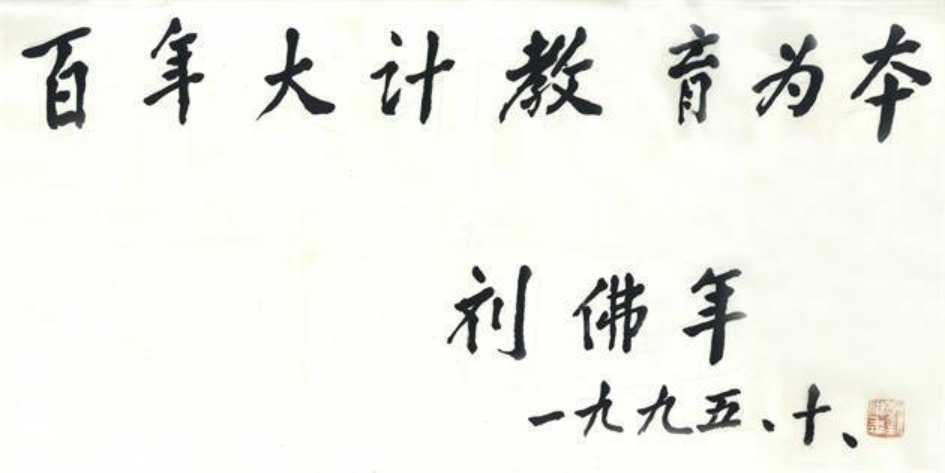 百年大计教育为本
刘佛年
一九九五、十、